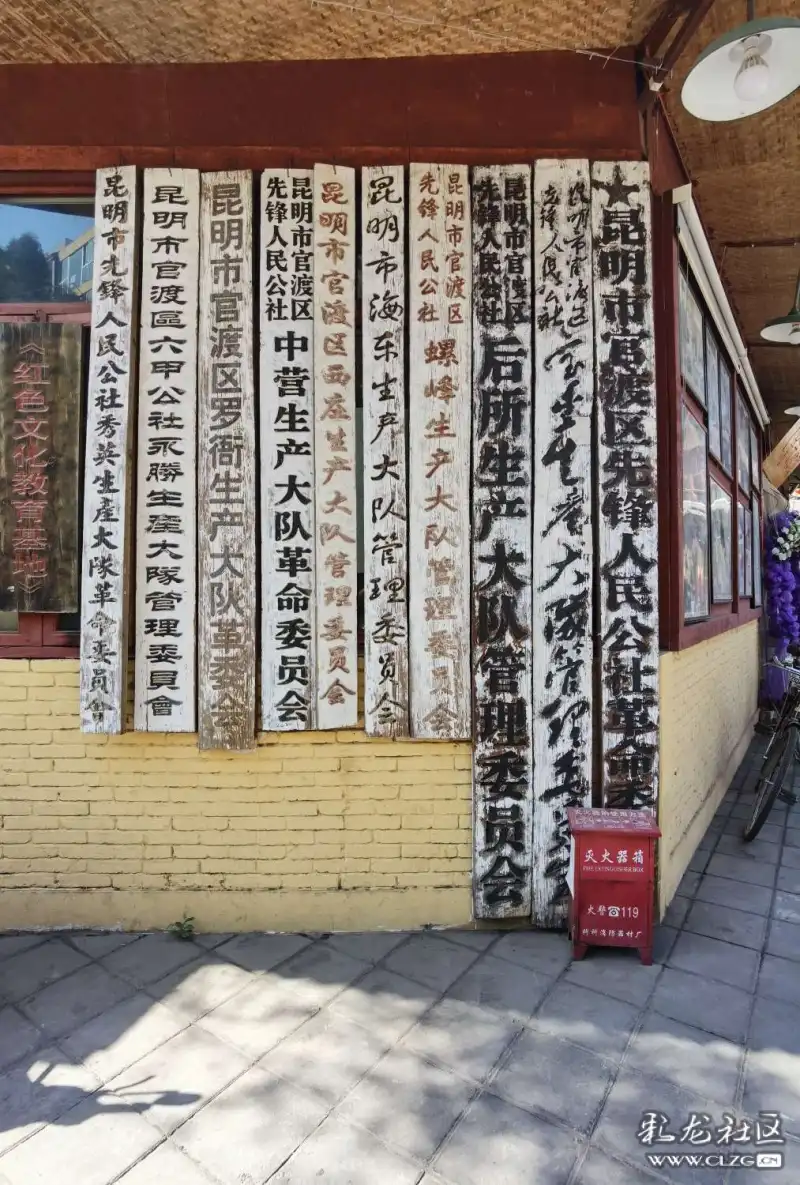 《红色文化教育基地》
昆明市先锋人民公社秀英生産大隊革命委員會
昆明市官渡區六甲公社永勝生產大隊管理委員會
昆明市官渡区罗衙生产大队革委会
昆明市官渡区
先锋人民公社
中营生产大队革命委员会
昆明市官渡区西庄生产大队管理委员会
昆明市海东生产大队管理委员会
昆明市官渡区
先锋人民公社
螺峰生产大队管理委员会
昆明市官渡区
先锋人民公社
后所生产大队管理委员会
昆明市官渡区
先锋人民公社
生產大隊管理委员会
★昆明市官渡区先锋人民公社革命委
灭火器箱
火警☎119
彩龙社区
WWW.CLZG.CN